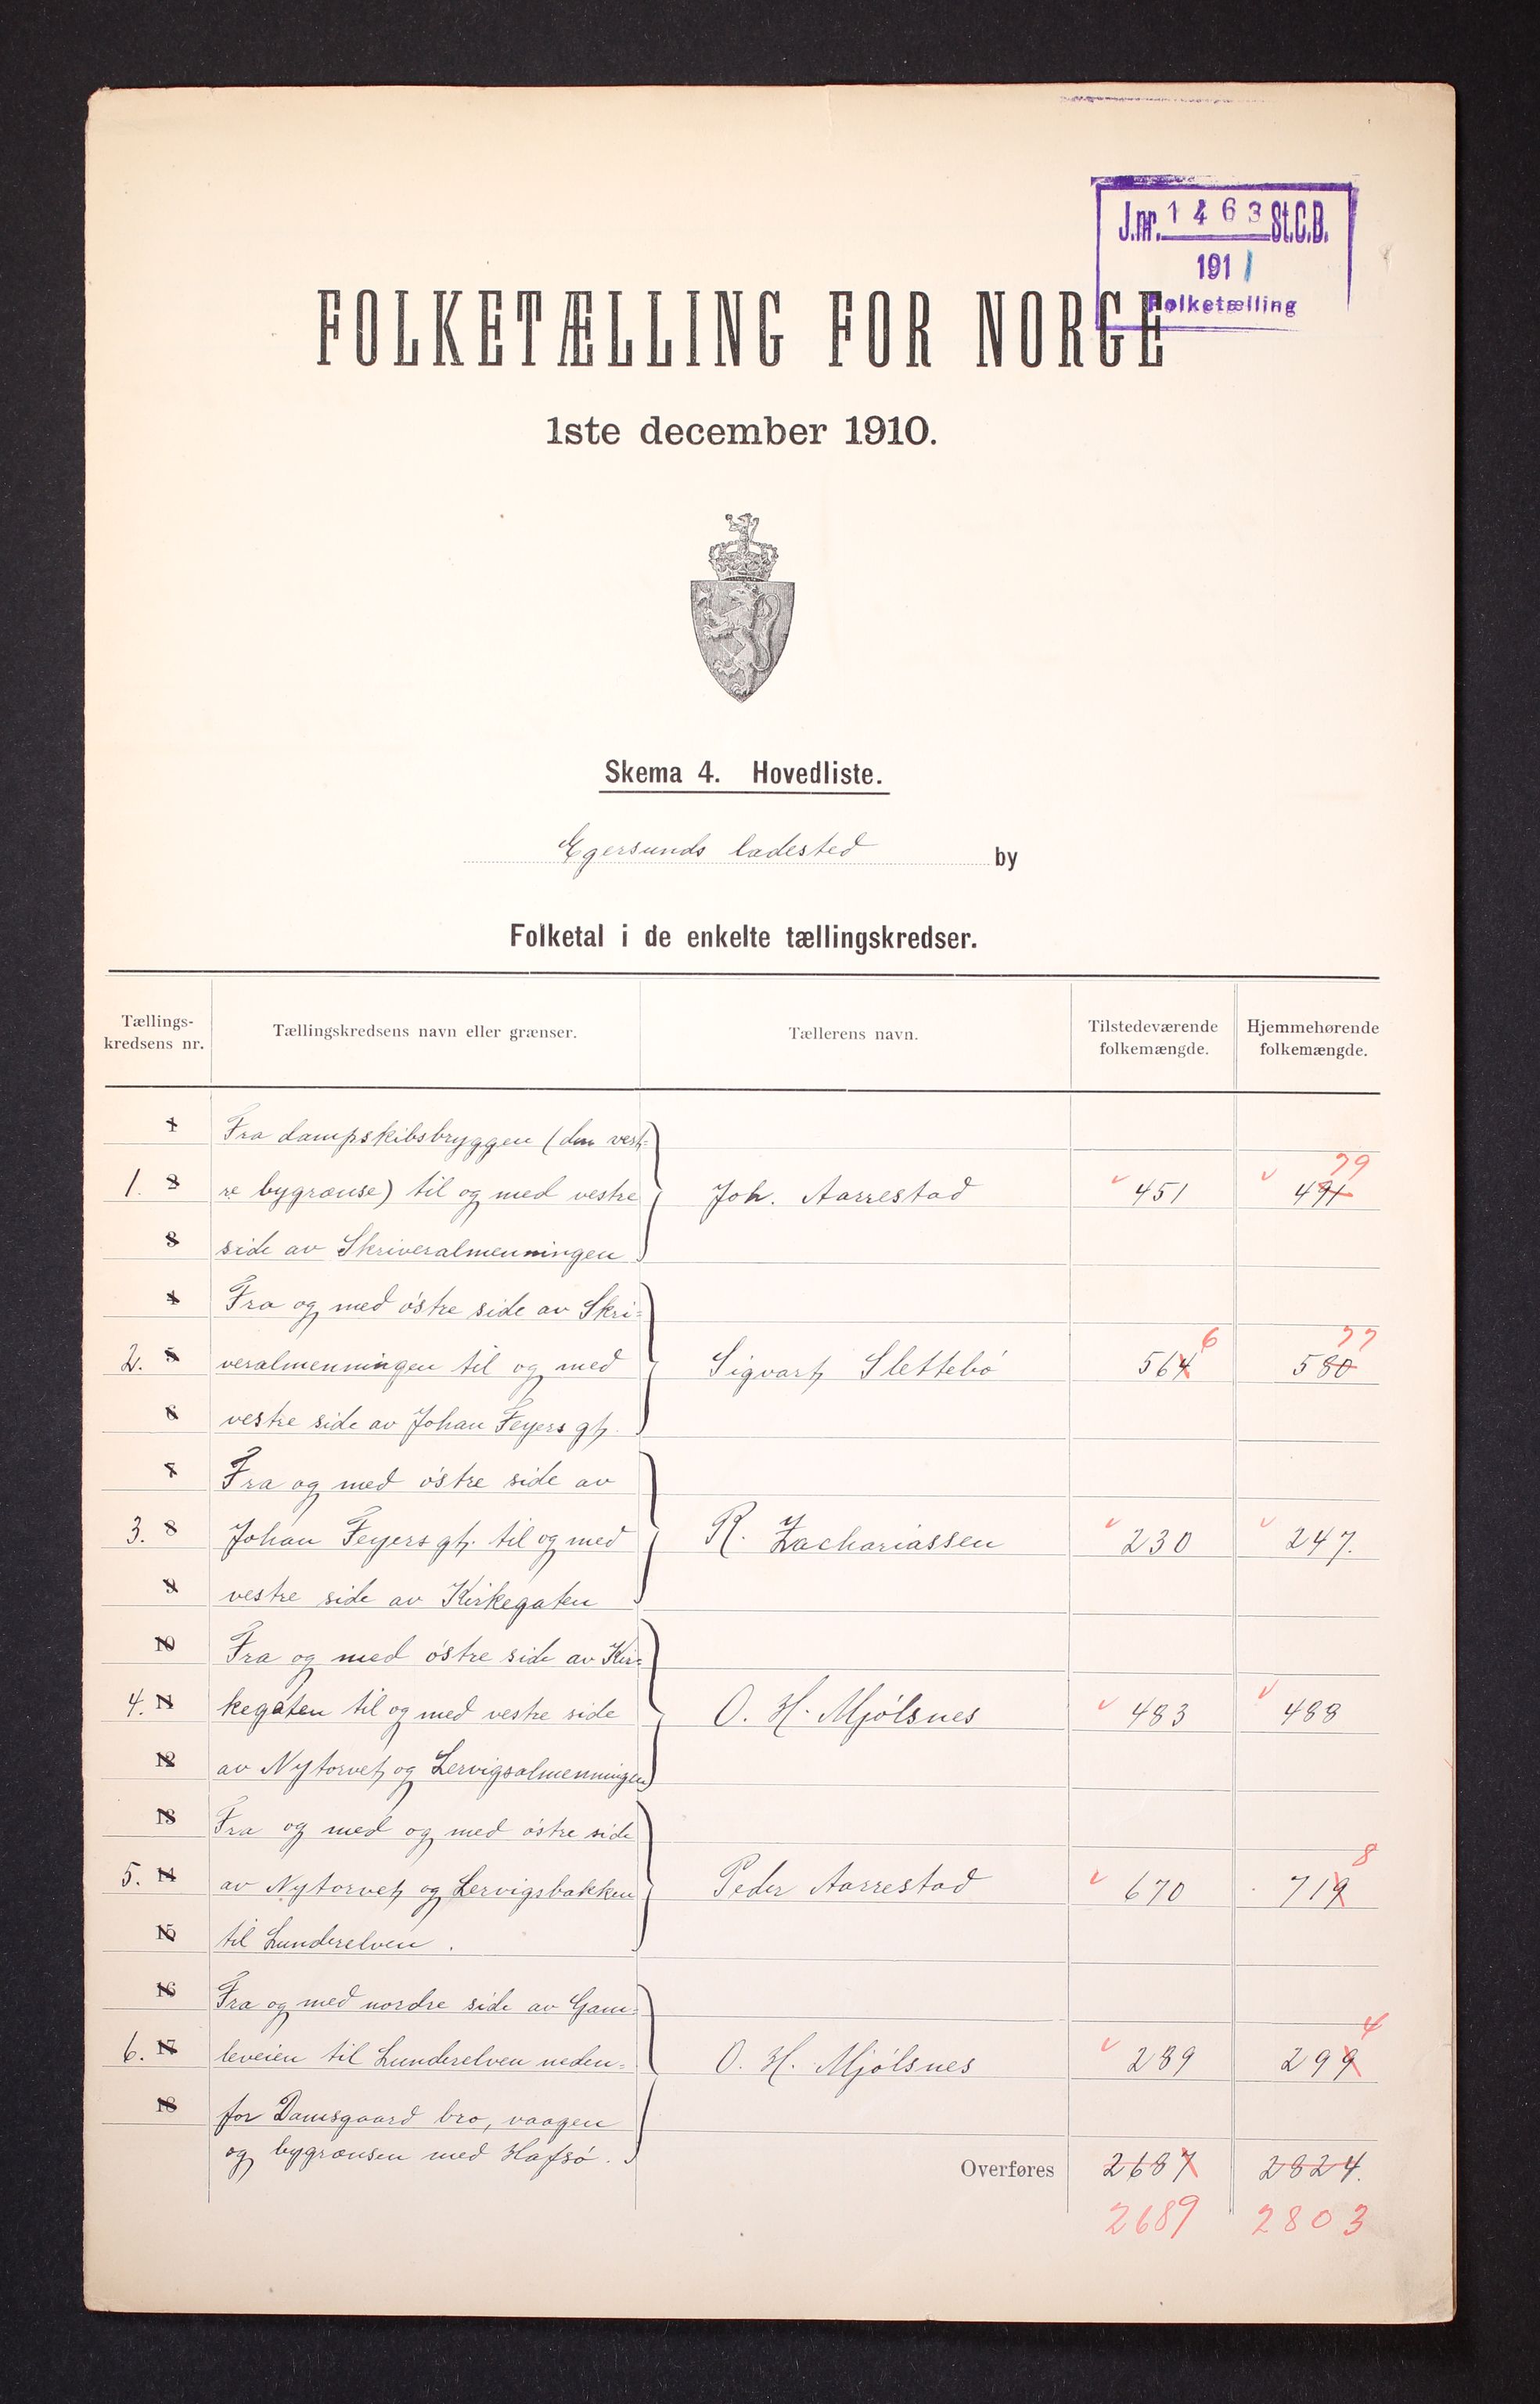 J.nr. 1463 St.C.B.
1911
Folketælling
FOLKETÆLLING FOR NORGE
1ste december 1910.
Skema 4. Hovedliste.
Egersunds ladested by
Folketal i de enkelte tællingskredser.
Tællings-kredsens nr. Tællingskredsens navn eller grænser. Tællerens navn. Tilstedeværende folkemængde. Hjemmehørende folkemængde.
1 Fra dampskibsbryggen (den vest=
79
1. 2 re bygrænse) til og med vestre Joh. Aarrestad 451 491
3 side av Skriveralmenningen
4 Fra og med østre side av Skri=
6 77
2. 5 veralmenningen til og med Sigvart Slettebø 564 580
6 vestre side av Johan Feyers gt.
7 Fra og med østre side av
3. 8 Johan Feyers gt. til og med R. Zachariassen 230 247.
9 vestre side av Kirkegaten
10 Fra og med østre side av Kir=
4. 11 kegaten til og med vestre side O. H. Mjølsnes 483 488
12 av Nytorvet og Lervigsalmenningen
13 Fra og med og med østre side
8
5. 14 av Nytorvet og Lervigsbakken Peder Aarrestad 670 719
15 til Lunderelven.
16 Fra og med nordre side av Gam=
4
6. 17 leveien til Lunderelven neden= O. H. Mjølsnes 289 299
18 for Damsgaard bro, vaagen
og bygrænsen med Hafsø.
Overføres 2687 2824.
2689 2803